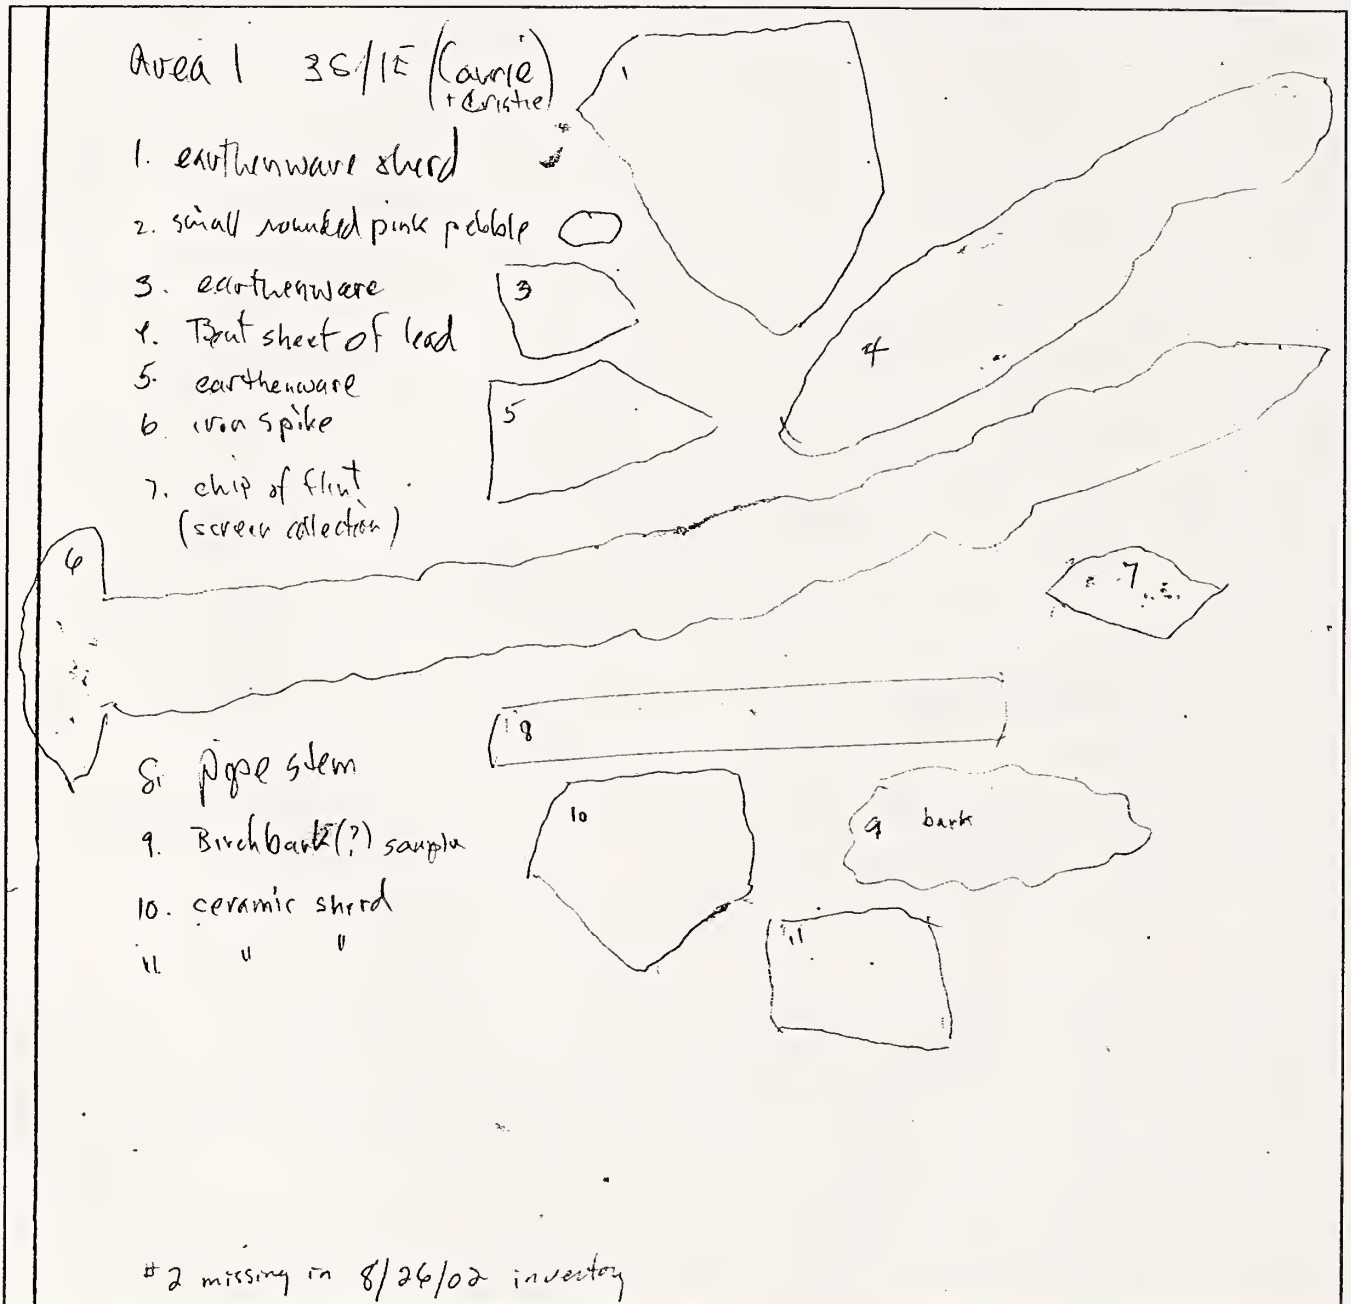 Area 1 3S/1E (Laurie
+ Cristie)
1. earthenware sherd
2. small rounded pink pebble
3. earthenware
4. Bent sheet of lead
5. earthenware
6. iron spike
7. chip of flint
(screen collection)
1
3
4
5
6
7
8
8. pipe stem
9. Birchbark(?) sample
10. ceramic sherd
11. " "
10
9 bark
11
#2 missing in 8/26/02 inventory